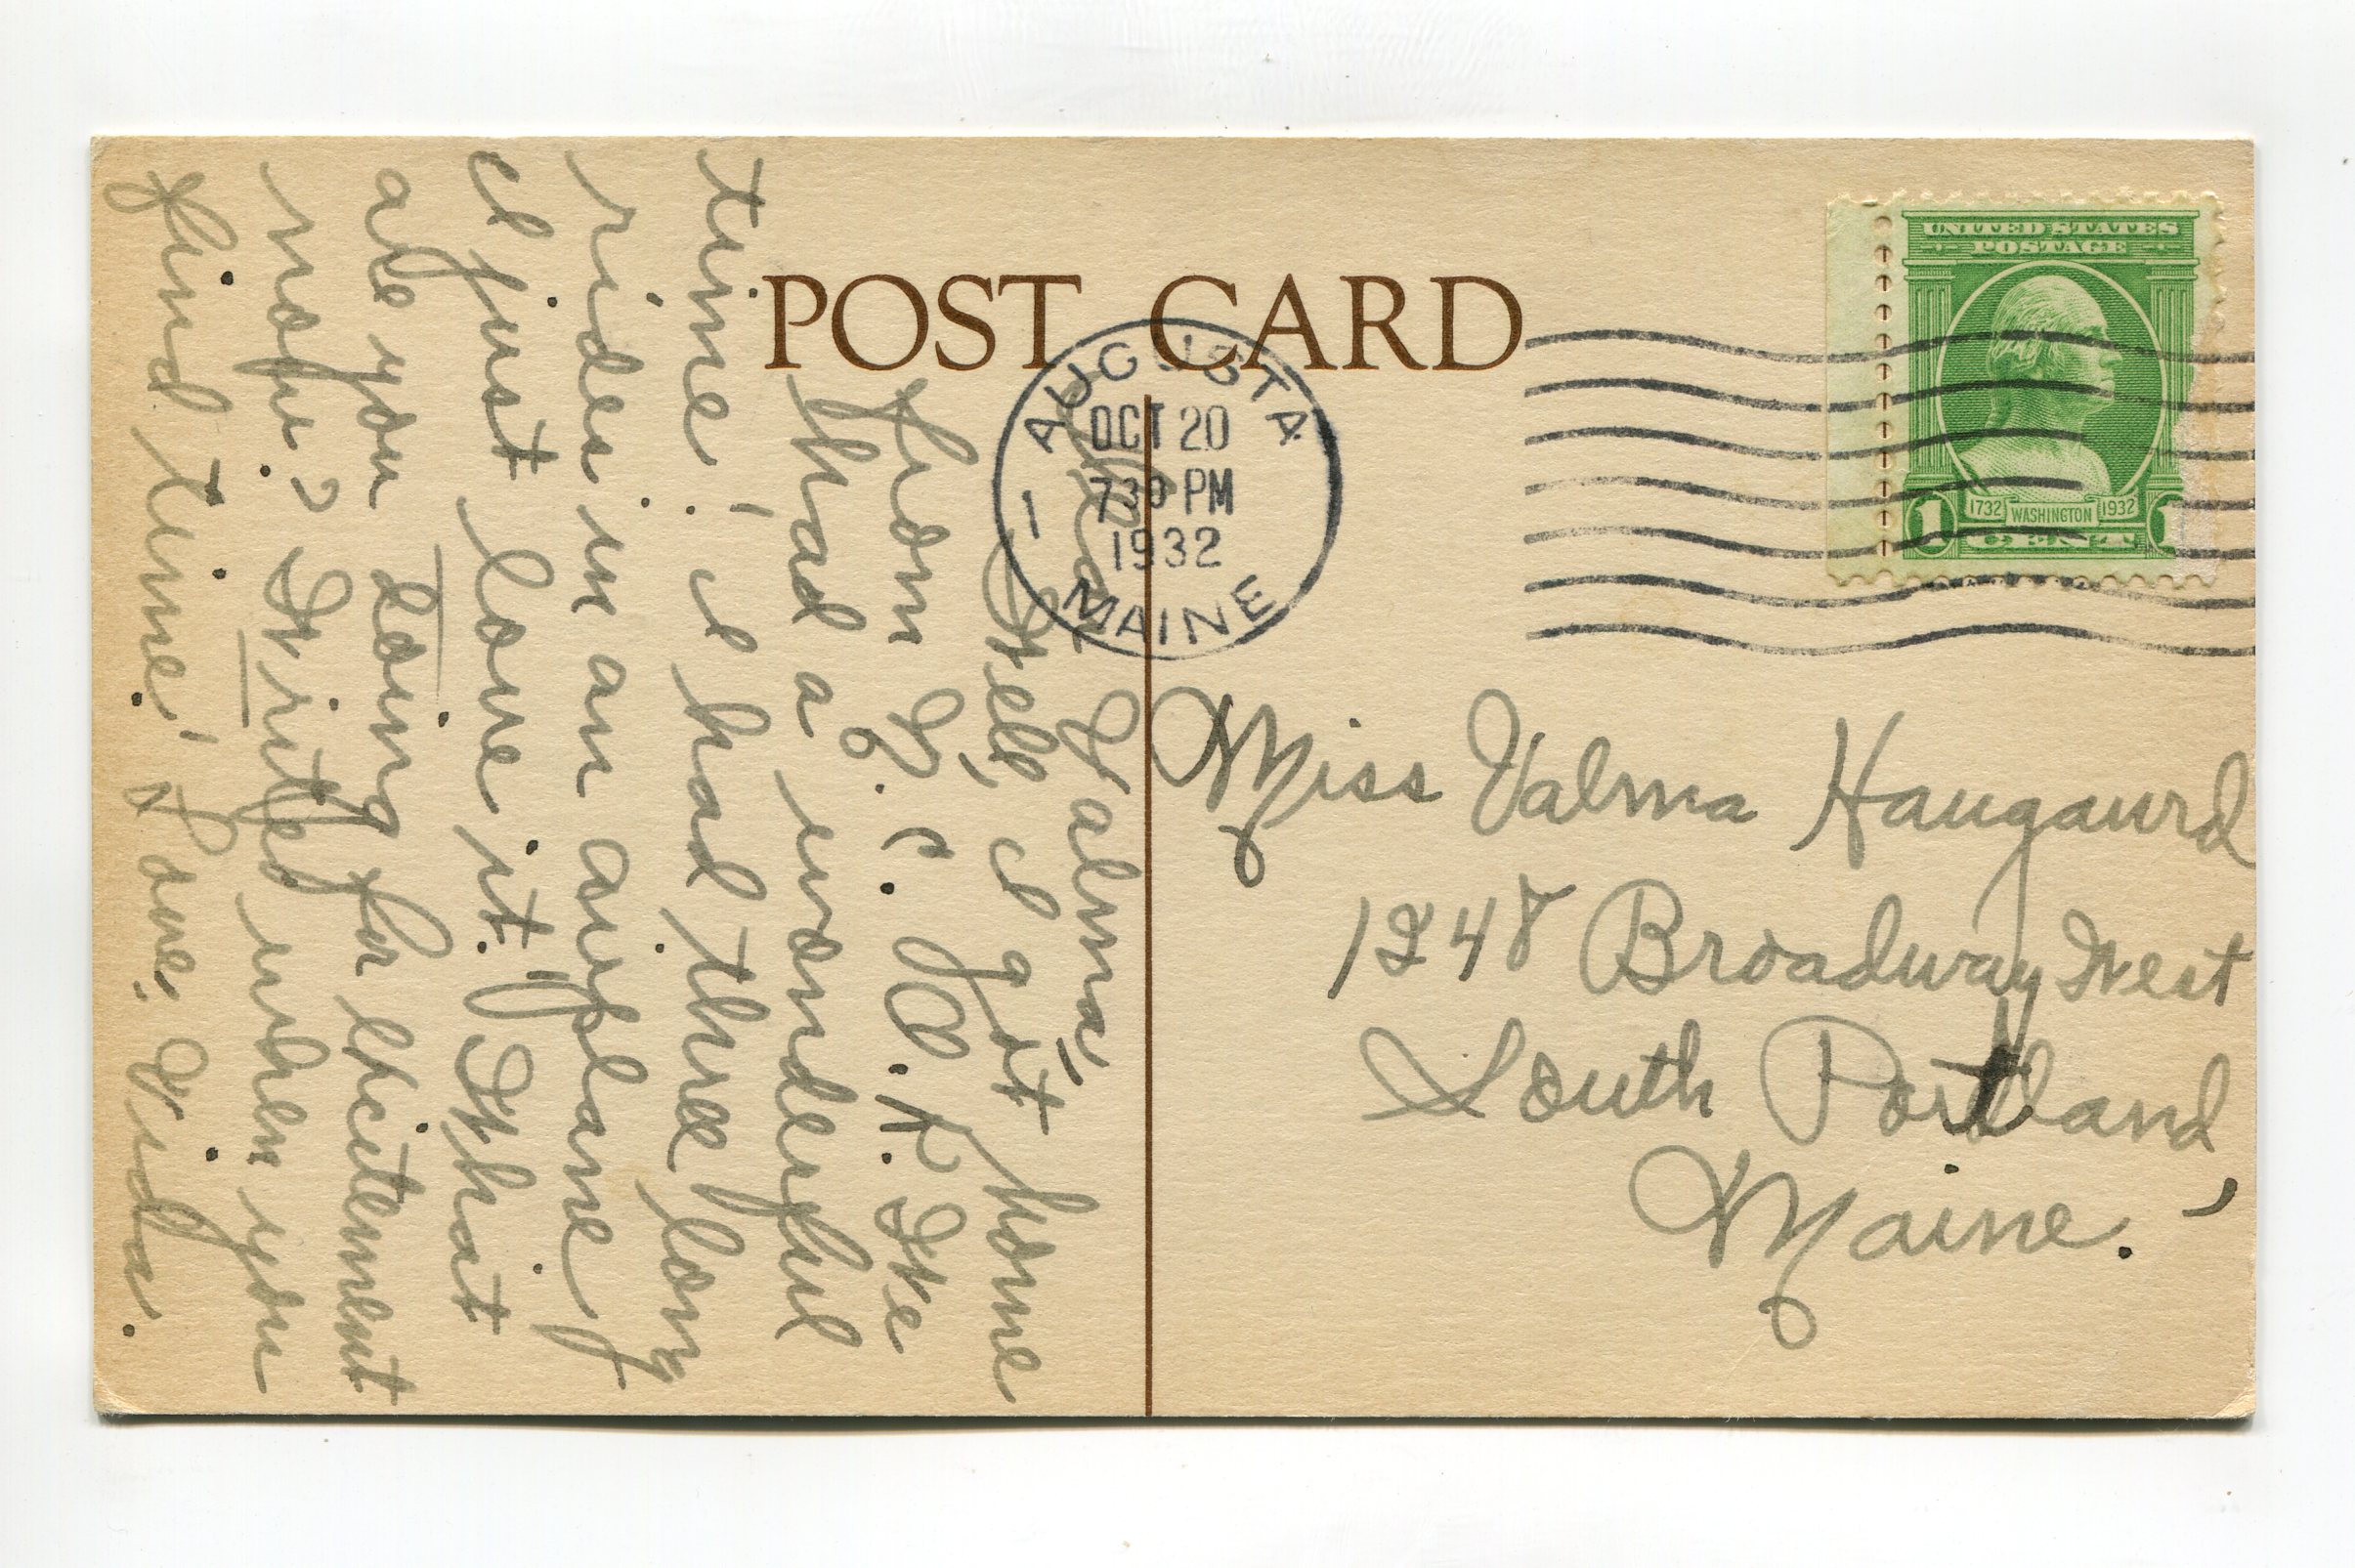 POST CARD
AUGUSTA
OCT 20
730 PM
1932
MAINE
UNITED STATES
POSTAGE
1732 WASHINGTON 1932
1 CENT 1
Dear Valma,
Well, I got home
from C. O.K. We
had a wonderful
time! I had three long
rides in an airplane
I just love it. What
are you doing for excitement
now? Write when you
find time! Love, Vida.
Miss Valma Haugaurd
1248 Broadway West
South Portland,
Maine.